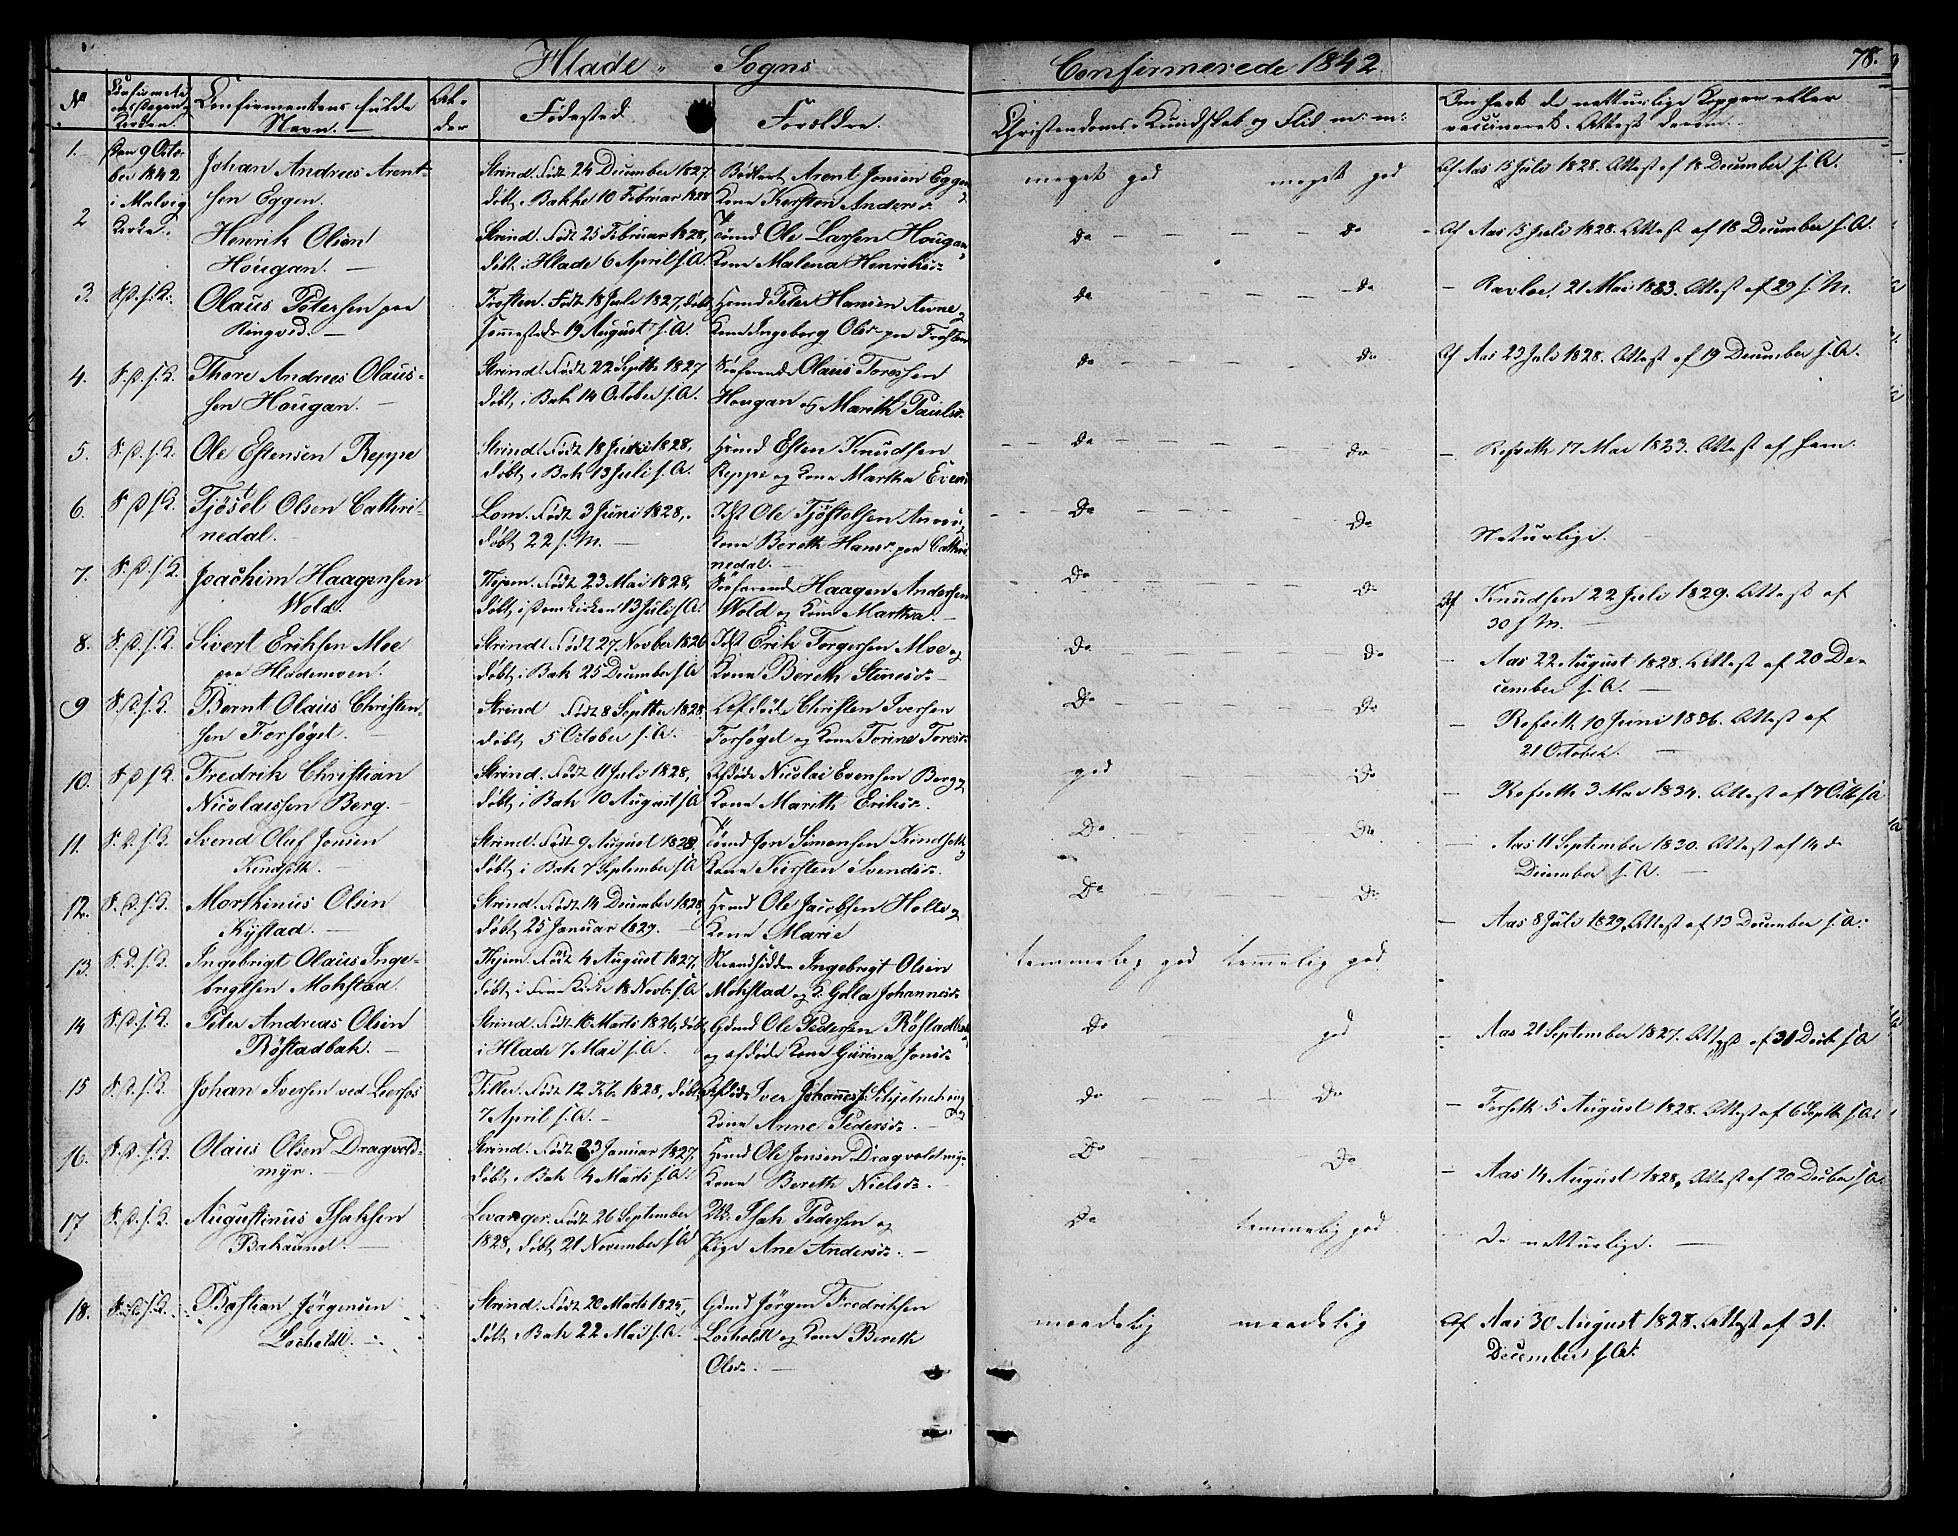 Hlade Sogns Confirmerede 1842 78.
No Confirmantens fulde Navn. Alder Fødested Forældre. Christendoms-Kundskab og Flid m: m: Om havt de naturlige Kopper eller vaccineret. Attest derom
1. Den 9 October 1842 i Malvig Kirke.
Johan Andreas Arentsen Eggen.
Strind. Født 24 December 1827
døbt i Bakke 10 Februar 1828
Arent Jonsen Eggen
Kone Kersten Andersd.
meget god meget god
Af Aas 15 Juli 1828. Attest af 18 December s. A.
2
Henrik Olsen
Hougan.
Strind. Født 25 Februar 1828,
døbt i Hlade 6 April s. A.
Ole Larsen Hougan
Kone Malena Henriksd.
do do
Af Aas 15 Juli 1828. Attest af 18 December s. A.
3. S. D. s. K.
Olaus Petersen paa
Ringved.
Frosten. Født 18 Juli 1827, døbt
sammesteds 19 August s. A.
Huusmd Peter Hansen
Kone Ingeborg Olsd. paa Frosten
do do
21 Mai 1833. Attest af 29 s. M.
4. S. D. s. K.
Thore Andreas Olaus-
sen Hougan.
Strind. Født 22 Septbr 1827
døbt i Bak 14 October s. A.
Søfarende Olaus Toresen
Hougan og Marith Paulsd.
do do
Af Aas 23 Juli 1828. Attest af 19 December s. A.
5. S. D. s. K.
Ole Estensen Reppe
Strind. Født 18 Juni 1828,
døbt i Bak 13 Juli s. A.
Huusmd Esten Knudsen
Reppe og Kone Martha Evensd
do do
Refseth 17 Mai 1833. Attest af ham.
6. S. D. s. K.
Tjöstel Olsen Cathri-
nedal.
Lom. Født 3 Juni 1828,
døbt 22 s. M.
Ole Tjöstolsen
Kone Bereth Hansd. paa Cathri
nedal.
Do Do
Naturlige.
7. S. D. s. K.
Joachim Haagensen
Wold.
Født 23 Mai 1828,
13 Juli s. A.
Søfarende Haagen Andersen
Wold og Kone Martha.
Do Do
Af Knudsen 22 Juli 1829. Attest af
30 s. M.
8. S. D. s. K.
Sivert Eriksen Moe
paa Hlademoen.
Strind. Født 27 Novber 1826
døbt i Bak 25 December s. A
Erik Torgersen Moe og
Kone Bereth
Do Do
Aas 22 August 1828. Attest af 20 De-
cember s. A.
9 S. D. s. K.
Bernt Olaus Christen-
sen Forsøget.
Strind Født 8 Septber 1828
døbt 5 October s. A.
Afdøde Christen Iversen
Forsøget og Kone Torine Toresd.
Do Do
Refseth 10 Juni 1836. Attest af
21 October.
10. S. D. s. K.
Fredrik Christian
Nicolaissen Berg.
Strind. Født 11 Juli 1828,
døbt i Bak 10 August s. A
Afdøde Nicolai Evensen Berg og
Kone Marith Eriksd.
god Do
Refseth 3 Mai 1834. Attest af 7 s. A
11. S. D. s. K.
Svend Oluf Jonsen
Kindseth.
Strind. Født 9 August 1828,
døbt i Bak 7 September s. A
Jon Simonsen Kindseth
Kone Kirsten Svendsd.
Do Do
Aas 11 September 1820. Attest af 14 de
December s. A.
12. S. D. s. K.
Morthinus Olsen
Kystad.
Strind. Født 14 December 1828,
døbt 25 Januar 1829.
Huusmd Ole Jacobsen Holte og
Kone Marie
Do Do
Aas 8 Juli 1829, Attest af 13 December s. A.
13. S. D. s. K.
Ingebrigt Olaus Inge-
brigtsen Mokstad.
Født 4 August 1827,
døbt i 18 Novb. s. A
Strandsidder Ingebrigt Olsen
Mokstad og K. Golla Johannesd.
temmelig god temmelig god
14 S. D. s. K.
Peter Andreas Olsen
Röstadbak.
Strind. Født 16 Marts 1826, døbt
i Hlade 7 Mai s. A.
Gdmd Ole Pedersen Röstadbak
og afdøde Kone Gurina Jonsd.
Do god
Aas 21 September 1827. Attest af 31 Decb. s. A
15 S. D. s. K.
Johan Iversen ved Leerfos
Tiller. Født 12 Feb. 1828, døbt
7 April s. A.
Afdøde Iver Johannes.
Kone Anne Pedersd.
Do Do
Forseth 5 August 1828. Attest af 6 Septbr s. A.
16. S. D. s. K.
Olaus Olsen Dragvold-
myr.
Strind. Født 23 Januar 1827.
døbt i Bak 4 Marts s. A.
Huusmd Ole Jonsen Dragvoldmyr
Kone Bereth Nielsd.
Do Do
Aas 14 August 1828, Attest af 20 Decber s. A.
17 S. D. s. K.
Augustinus Isaksen
Bakaunet.
Levanger. Født 26 September
1828, døbt 21 November s. A
Isak Pedersen og
Pige Ane Andersd.
Do temmelig god
De naturlige.
18. S. D. s. K.
Bastian Jörgensen
Locholdt.
Strind. Født 20 Marts 1825,
døbt i Bak 22 Mai s. A.
Gdmd Jörgen Fredriksen
Locholdt og Kone Bereth
Olsd.
maadelig maadelig
Af Aas 30 August 1828. Attest af 31.
December s. A.